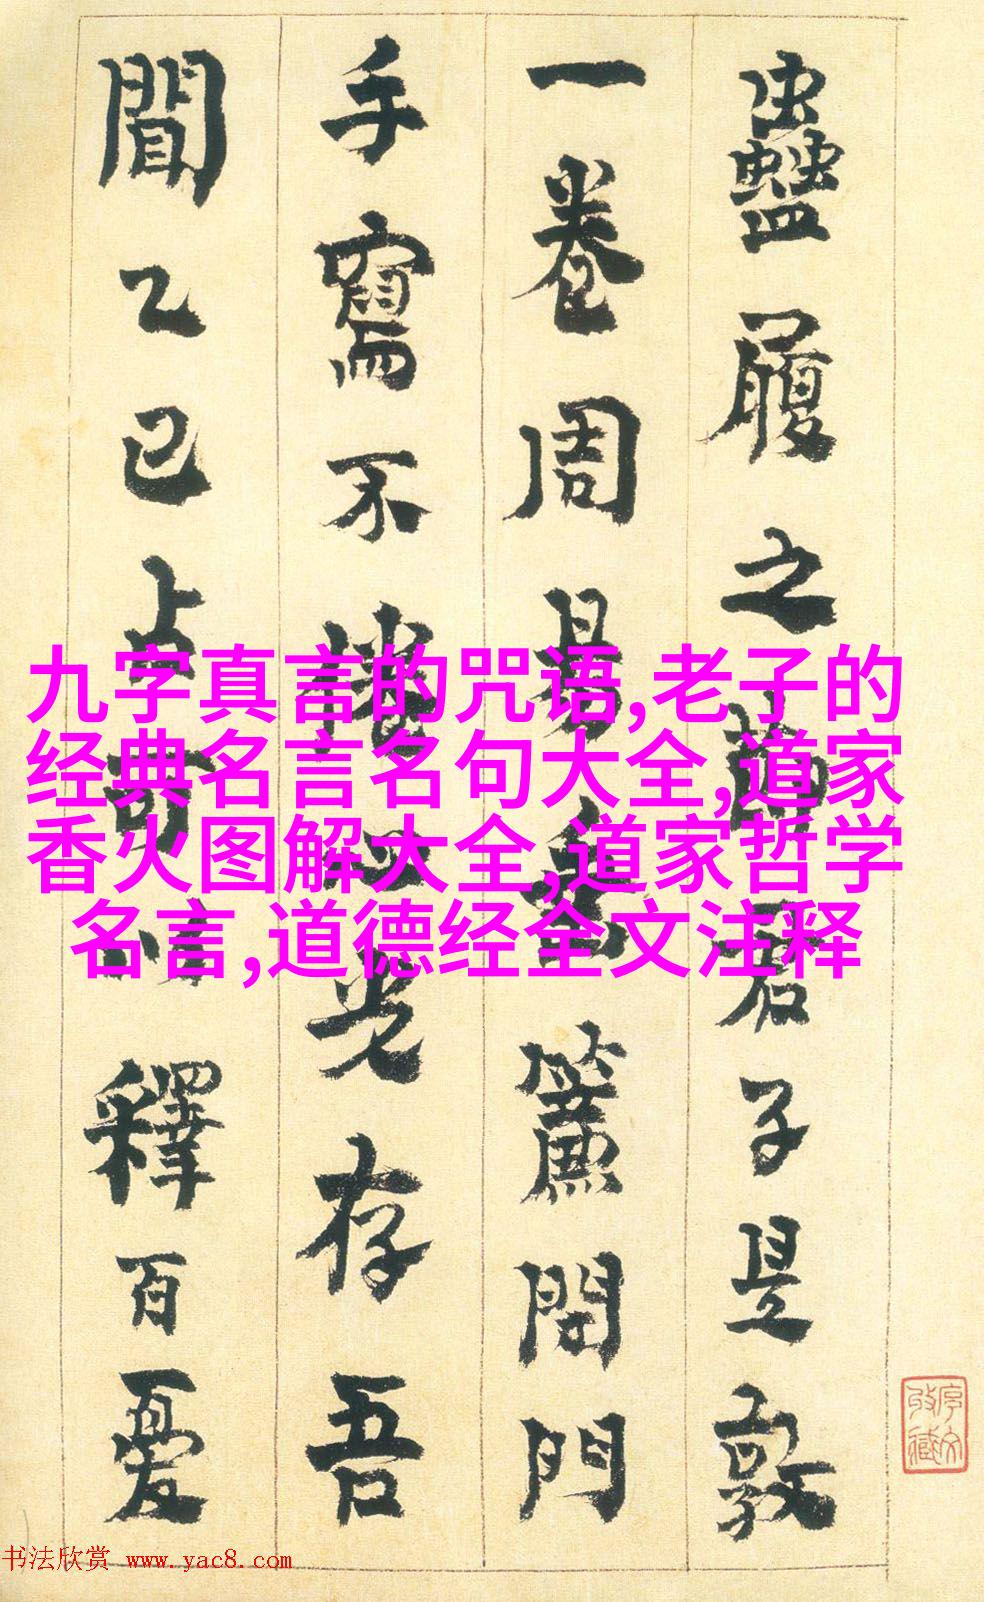 蠱履之節君子是敦
一卷周易垂簾閉門
手寫不存吾
聞乙巳占可以釋百憂
九字真言的咒语,老子的
经典名言名句大全,道家
香火图解大全,道家哲学
名言,道德经全文注释
书法欣赏 www.yac8.com